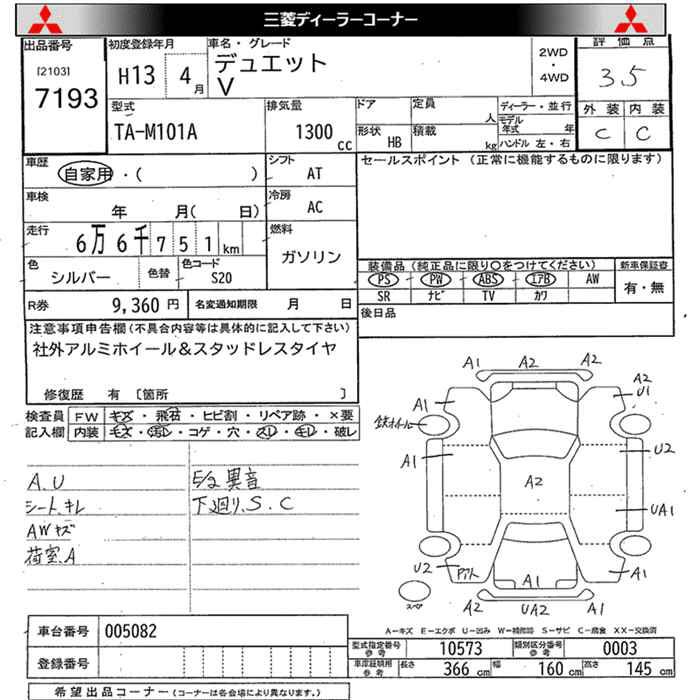 三菱ディーラーコーナー
出品番号
[2103]
7193
初度登録年月
H13 4月
車名・グレード
デュエット
V
2WD
・
4WD
評価点
3.5
外装 内装
C C
型式
TA-M101A
排気量
1300cc
ドア
形状 HB
定員 人
積載 kg
ディーラー・並行
モデル年式 年
ハンドル 左・右
車歴
自家用・( )
シフト
AT
車検
年 月( 日)
冷房
AC
走行
6万6千751km
燃料
ガソリン
色
シルバー
色替
色コード
S20
R券 9,360円
名変通知期限 月 日
セールスポイント (正常に機能するものに限ります)
装備品 (純正品に限り○をつけてください)
PS PW ABS エアB AW
SR ナビ TV カワ
新車保証書
有・無
後日品
注意事項申告欄(不具合内容等は具体的に記入して下さい)
社外アルミホイール&スタッドレスタイヤ
修復歴 有〔箇所 〕
検査員記入欄
FW キズ・飛石・ヒビ割・リペア跡・×要
内装 キズ・汚レ・コゲ・穴・スレ・キレ・破レ
A.U
シート.キレ
AWキズ
荷室.A
E/g異音
下廻り.S.C
A1 A2 A2
A2
U1
A1
鉄ホイール
A1
U2
A2
UA1
U2
A1
A1
A2 UA2 A2
スペア
A-キズ E-エクボ U-凹み W-補修跡 S-サビ C-腐食 XX-交換済
車台番号 005082
登録番号
型式指定番号参考 10573
類別区分番号参考 0003
車庫証明用参考 長さ 366cm 幅 160cm 高さ 145cm
希望出品コーナー (コーナーは各会場により異なります。)